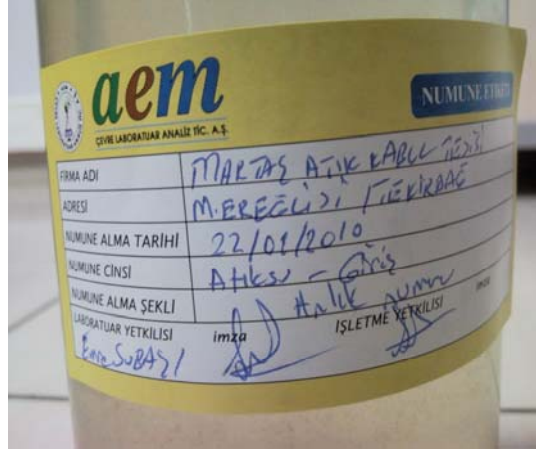 aem
ÇEVRE LABORATUAR ANALİZ TİC. A.Ş.
NUMUNE ETİKETİ
FİRMA ADI MARTAŞ ATIK KABUL TESİSİ
ADRESİ M.EREĞLİSİ / TEKİRDAĞ
NUMUNE ALMA TARİHİ 22/01/2010
NUMUNE CİNSİ Atıksu - Giriş
NUMUNE ALMA ŞEKLİ Anlık numune
LABORATUAR YETKİLİSİ imza İŞLETME YETKİLİSİ imza
Emre SUBAŞI